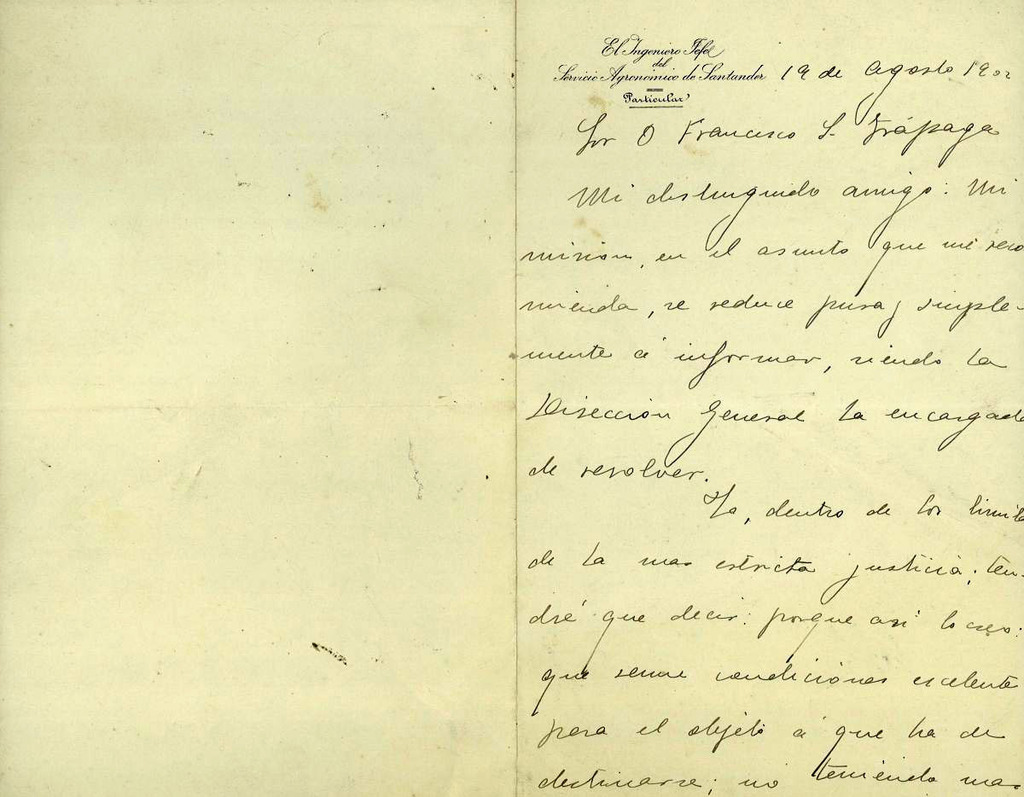 El Ingeniero Jefe
del
Servicio Agronómico de Santander
Particular
19 de Agosto 190
Sor D Francisco S. Trápaga
Mi distinguido amigo: Mi
mision, en el asunto que me reco
mienda, se reduce pura y simple-
mente á informar, siendo la
Direccion General la encargada
de resolver.
Yo, dentro de los limit
de la mas estricta justicia; ten-
dré que decir: porque asi lo creo:
que reune condiciones escelente
para el objeto á que ha de
destinarse; no teniendo mas